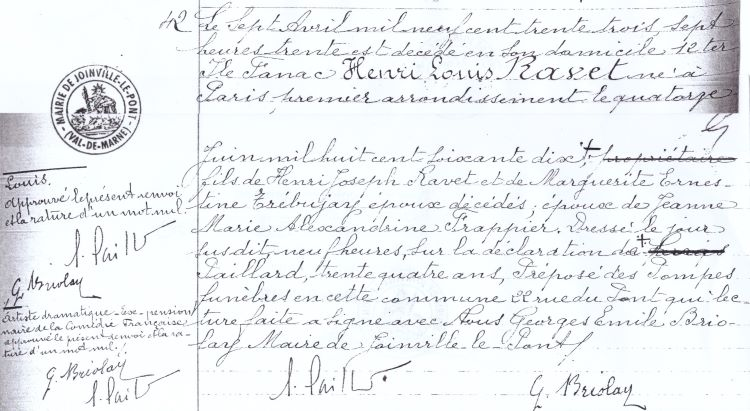 42
Le sept Avril mil neuf cent trente trois, sept
heures trente est décédé en son domicile 12 ter
Ile Fanac Henri Louis Ravet né à
Paris, premier arrondissement le quatorze
Juin mil huit cent soixante dix, + propriétaire
fils de Henri Joseph Ravet et de Marguerite Ernes-
tine Trébujay époux décédés; époux de Jeanne
Marie Alexandrine Frappier. Dressé le jour
susdit, neuf heures, sur la déclaration de +
Paillard, trente quatre ans, Préposé des Pompes
funèbres en cette commune 22 rue du Pont qui lec-
ture faite a signé avec Nous Georges Emile Brio-
lay Maire de Joinville-le-Pont
G. Briolay
MAIRIE DE JOINVILLE-LE-PONT
(VAL-DE-MARNE)
Louis.
approuvé le présent renvoi
et la rature d'un mot nul.
G. Briolay
Artiste dramatique - Ex-pension-
naire de la Comédie Française,
approuvé le présent renvoi et la ra-
ture d'un mot nul.
G. Briolay